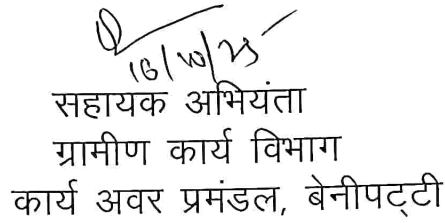 16/10/25
सहायक अभियंता
ग्रामीण कार्य विभाग
कार्य अवर प्रमंडल, बेनीपट्टी